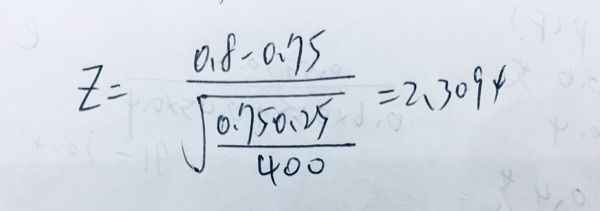 Z = \frac{0.8-0.75}{\sqrt{\frac{0.750.25}{400}}} = 2.3094